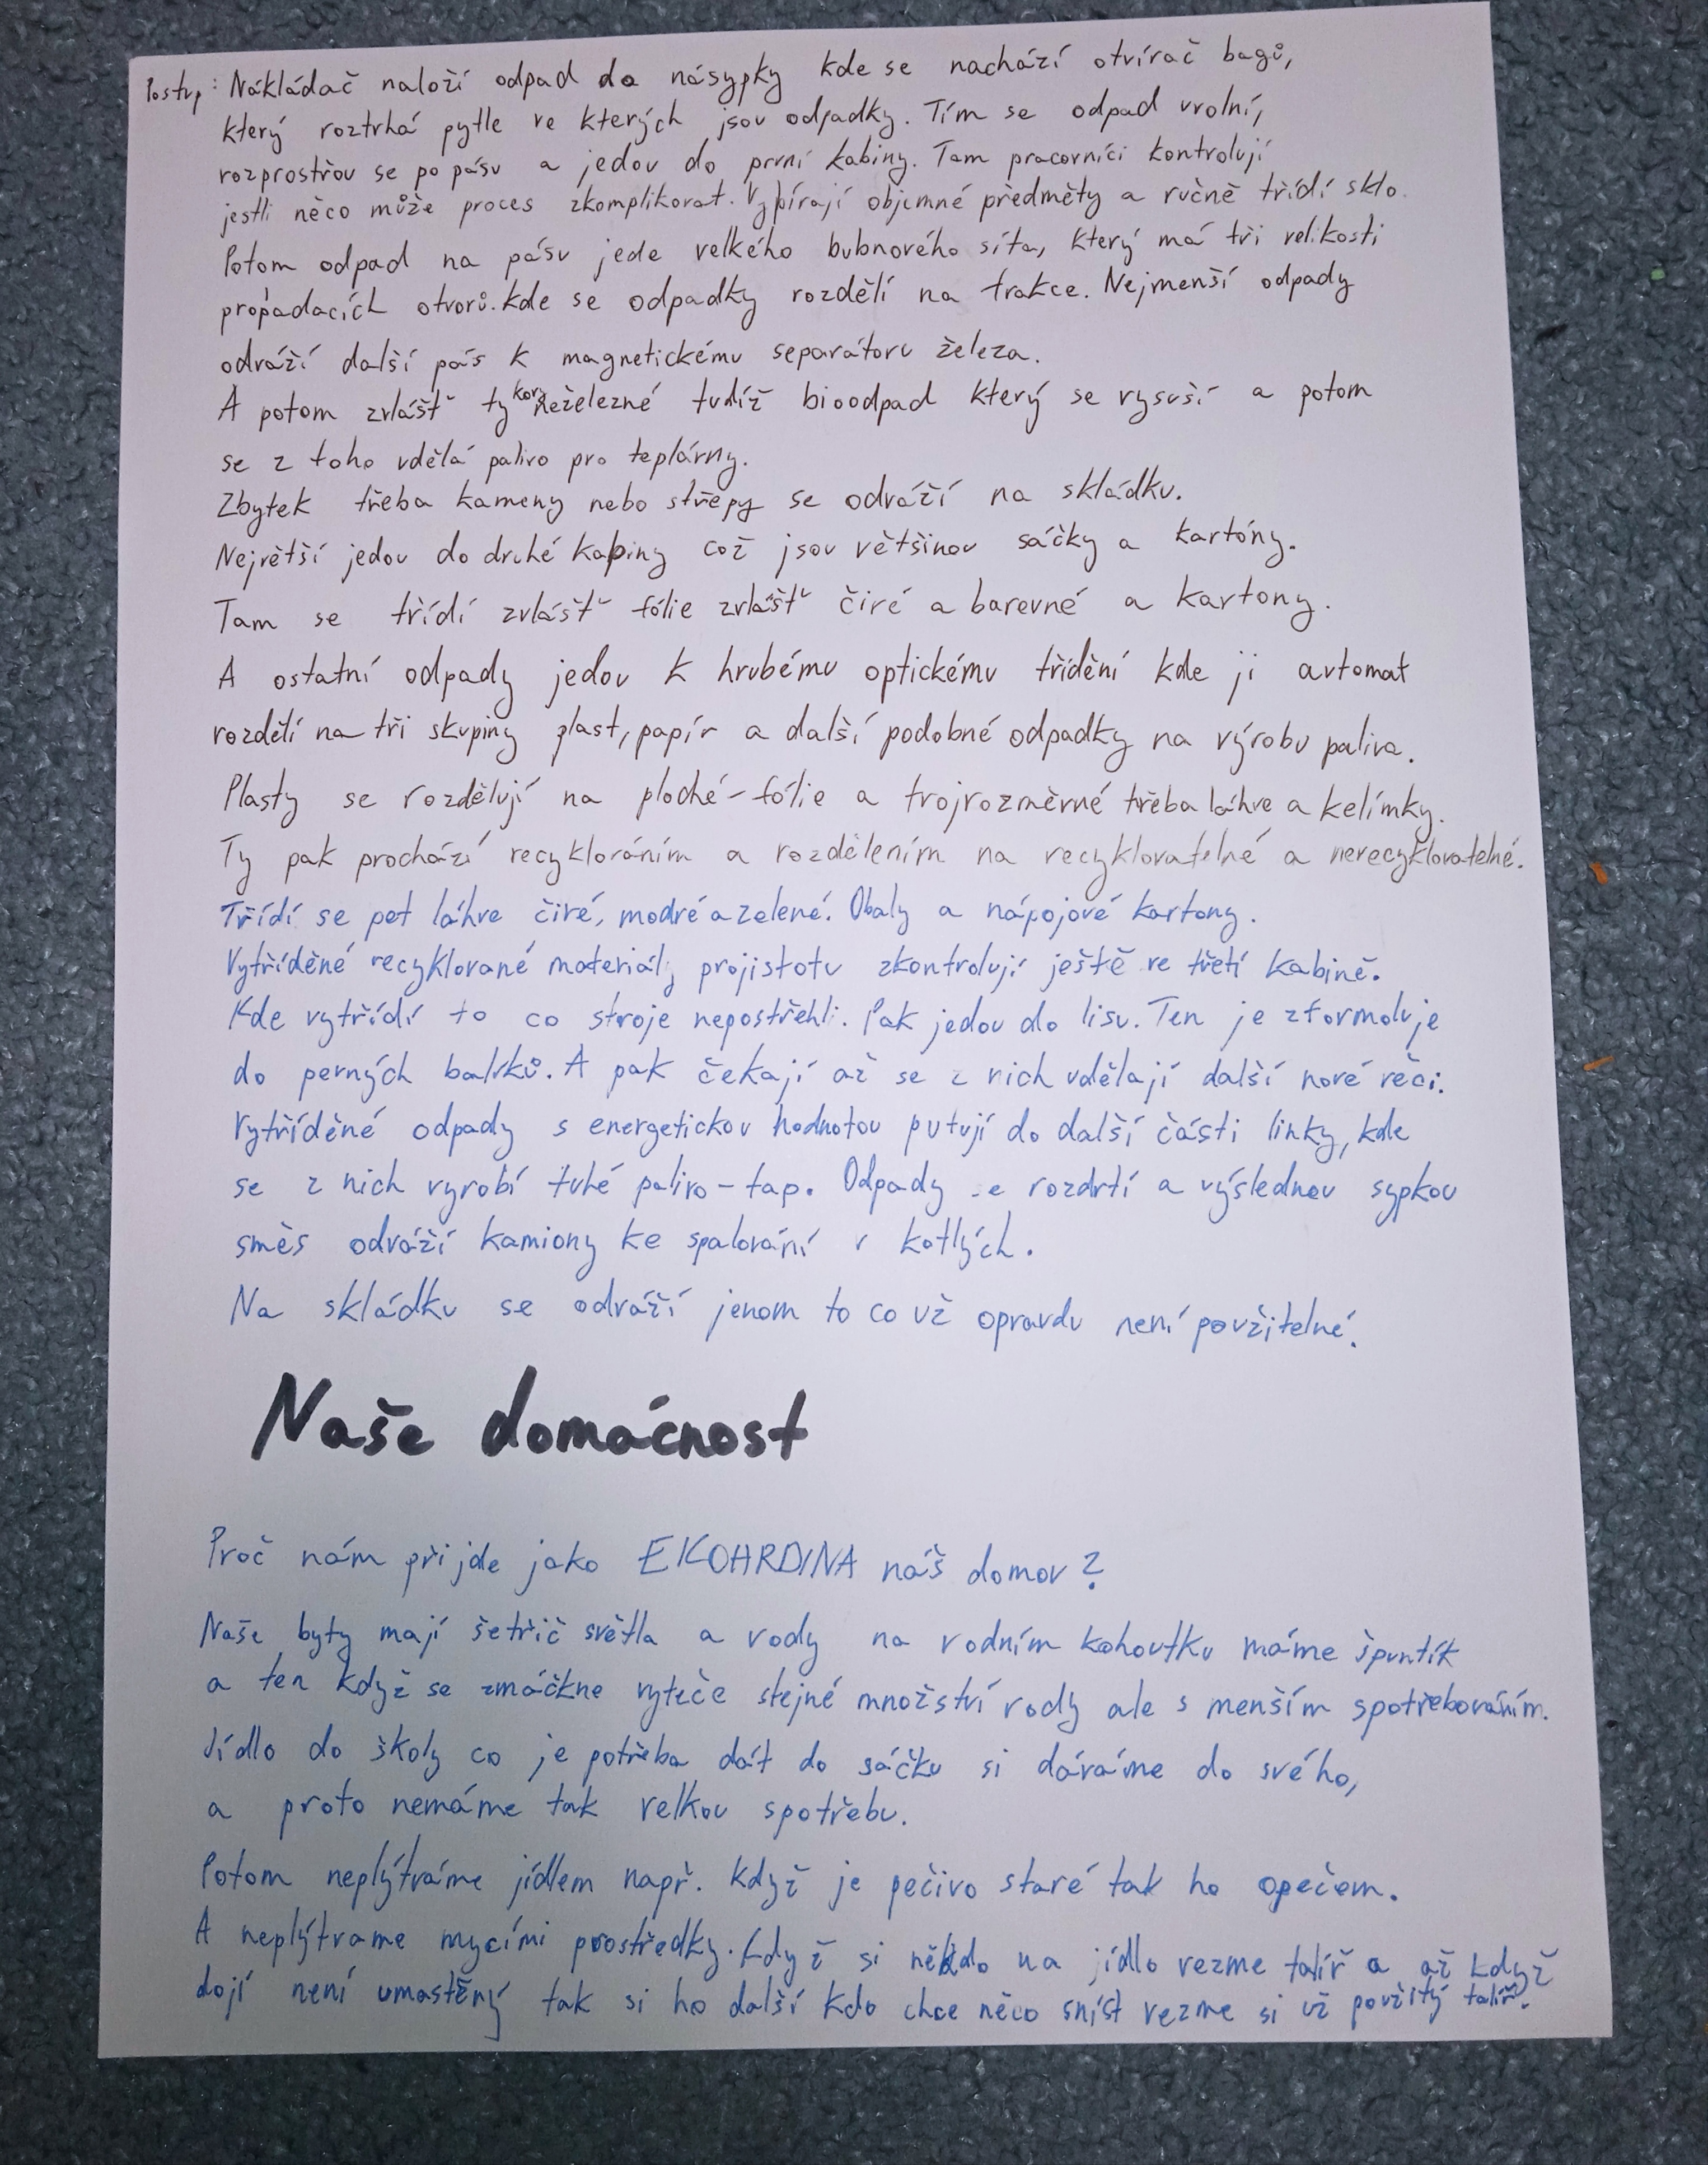 Postup: Nákládač naloží odpad do násypky kde se nachází otvírač bagů,
který roztrhá pytle ve kterých jsou odpadky. Tím se odpad uvolní,
rozprostřou se po pásu a jedou do první kabiny. Tam pracovníci kontrolují
jestli něco může proces zkomplikovat. Vybírají objemné předměty a ručně třídí sklo.
Potom odpad na pásu jede velkého bubnového síta, který má tři velikosti
propadacích otvorů. kde se odpadky rozdělí na frakce. Nejmenší odpady
odváží další pás k magnetickému separátoru železa.
A potom zvlášť ty neželezné tudíž bioodpad který se vysuší a potom
se z toho udělá palivo pro teplárny.
Zbytek třeba kameny nebo střepy se odváží na skládku.
Největší jedou do druhé kabiny což jsou většinou sáčky a kartóny.
Tam se třídí zvlášť fólie zvlášť čiré a barevné a kartony.
A ostatní odpady jedou k hrubému optickému třídění kde ji automat
rozdělí na tři skupiny plast, papír a další podobné odpadky na výrobu paliva.
Plasty se rozdělují na ploché-fólie a trojrozměrné třeba láhve a kelímky.
Ty pak prochází recyklováním a rozdělením na recyklovatelné a nerecyklovatelné.
Třídí se pet láhve čiré, modré a zelené. Obaly a nápojové kartony.
Vytříděné recyklované materiály projistotu zkontrolují ještě ve třetí kabině.
Kde vytřídí to co stroje nepostřehli. Pak jedou do lisu. Ten je zformuluje
do pevných balíků. A pak čekají až se z nich udělají další nové věci.
Vytříděné odpady s energetickou hodnotou putují do další části linky, kde
se z nich vyrobí tuhé palivo-tap. Odpady se rozdrtí a výslednou sypkou
směs odváží kamiony ke spalování v kotlých.
Na skládku se odváží jenom to co už opravdu není použitelné.
Naše domácnost
Proč nám přijde jako EKOHRDINA náš domov?
Naše byty mají šetřič světla a vody na vodním kohoutku máme špuntík
a ten když se zmáčkne vyteče stejné množství vody ale s menším spotřebováním.
Jídlo do školy co je potřeba dát do sáčku si dáváme do svého,
a proto nemáme tak velkou spotřebu.
Potom neplýtváme jídlem např. když je pečivo staré tak ho opečem.
A neplýtvame mycími prostředky. Když si někdo na jídlo vezme talíř a až když
dojí není umastěný tak si ho další kdo chce něco sníst vezme si už použitý talíř.